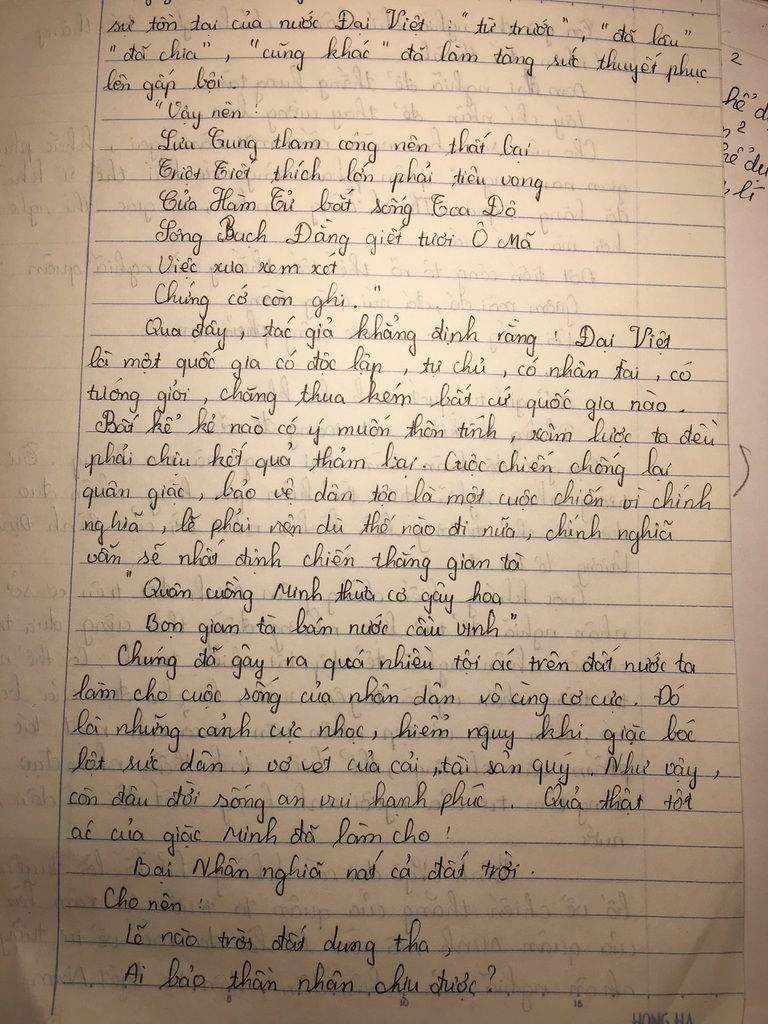 sự tồn tại của nước Đại Việt : "từ trước", "đã lâu"
"đã chia", "cũng khác" đã làm tăng sức thuyết phục
lên gấp bội.
"Vậy nên :
Lưu Cung tham công nên thất bại
Triệu Tiết thích lớn phải tiêu vong
Cửa Hàm Tử bắt sống Toa Đô
Sông Bạch Đằng giết tươi Ô Mã
Việc xưa xem xét
Chứng cớ còn ghi."
Qua đây, tác giả khẳng định rằng : Đại Việt
là một quốc gia có độc lập, tự chủ, có nhân tài, có
tướng giỏi, chẳng thua kém bất cứ quốc gia nào.
Bất kể kẻ nào có ý muốn thôn tính, xâm lược ta đều
phải chịu kết quả thảm bại. Cuộc chiến chống lại
quân giặc, bảo vệ dân tộc là một cuộc chiến vì chính
nghĩa, lẽ phải nên dù thế nào đi nữa, chính nghĩa
vẫn sẽ nhất định chiến thắng gian tà
"Quân cuồng Minh thừa cơ gây hoạ
Bọn gian tà bán nước cầu vinh"
Chúng đã gây ra quá nhiều tội ác trên đất nước ta
làm cho cuộc sống của nhân dân vô cùng cơ cực. Đó
là những cảnh cực nhọc, hiểm nguy khi giặc bóc
lột sức dân, vơ vét của cải, tài sản quý. Như vậy,
còn đâu đời sống an vui hạnh phúc. Quả thật tội
ác của giặc Minh đã làm cho !
Bại Nhân nghĩa nát cả đất trời.
Cho nên :
Lẽ nào trời đất dung tha,
Ai bảo thần nhân chịu được?
HONG HA